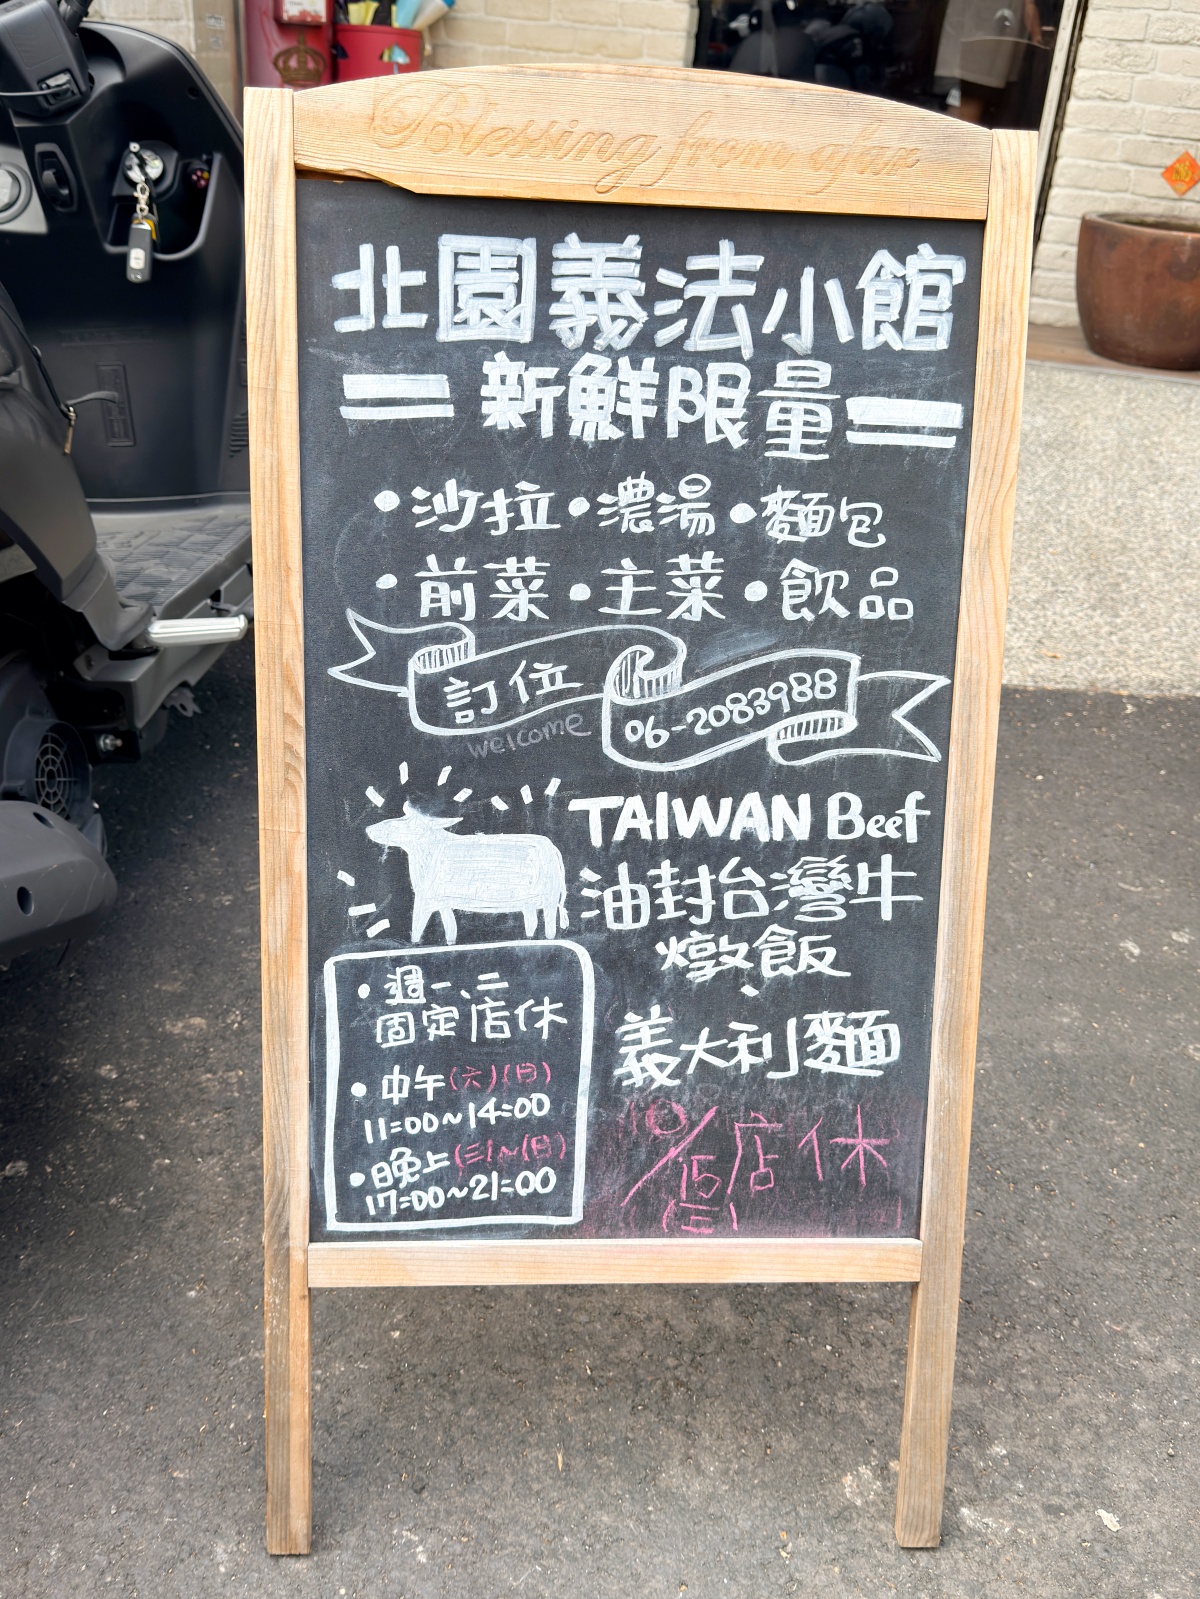 Blessing from afar
北園義法小館
新鮮限量
•沙拉•濃湯•麵包
•前菜•主菜•飲品
訂位 06-2083988
welcome
TAIWAN Beef
油封台灣牛
燉飯、
義大利麵
•週一、二
固定店休
•中午(六)(日)
11:00~14:00
•晚上(三)~(日)
17:00~21:00
10/15店休
(三)